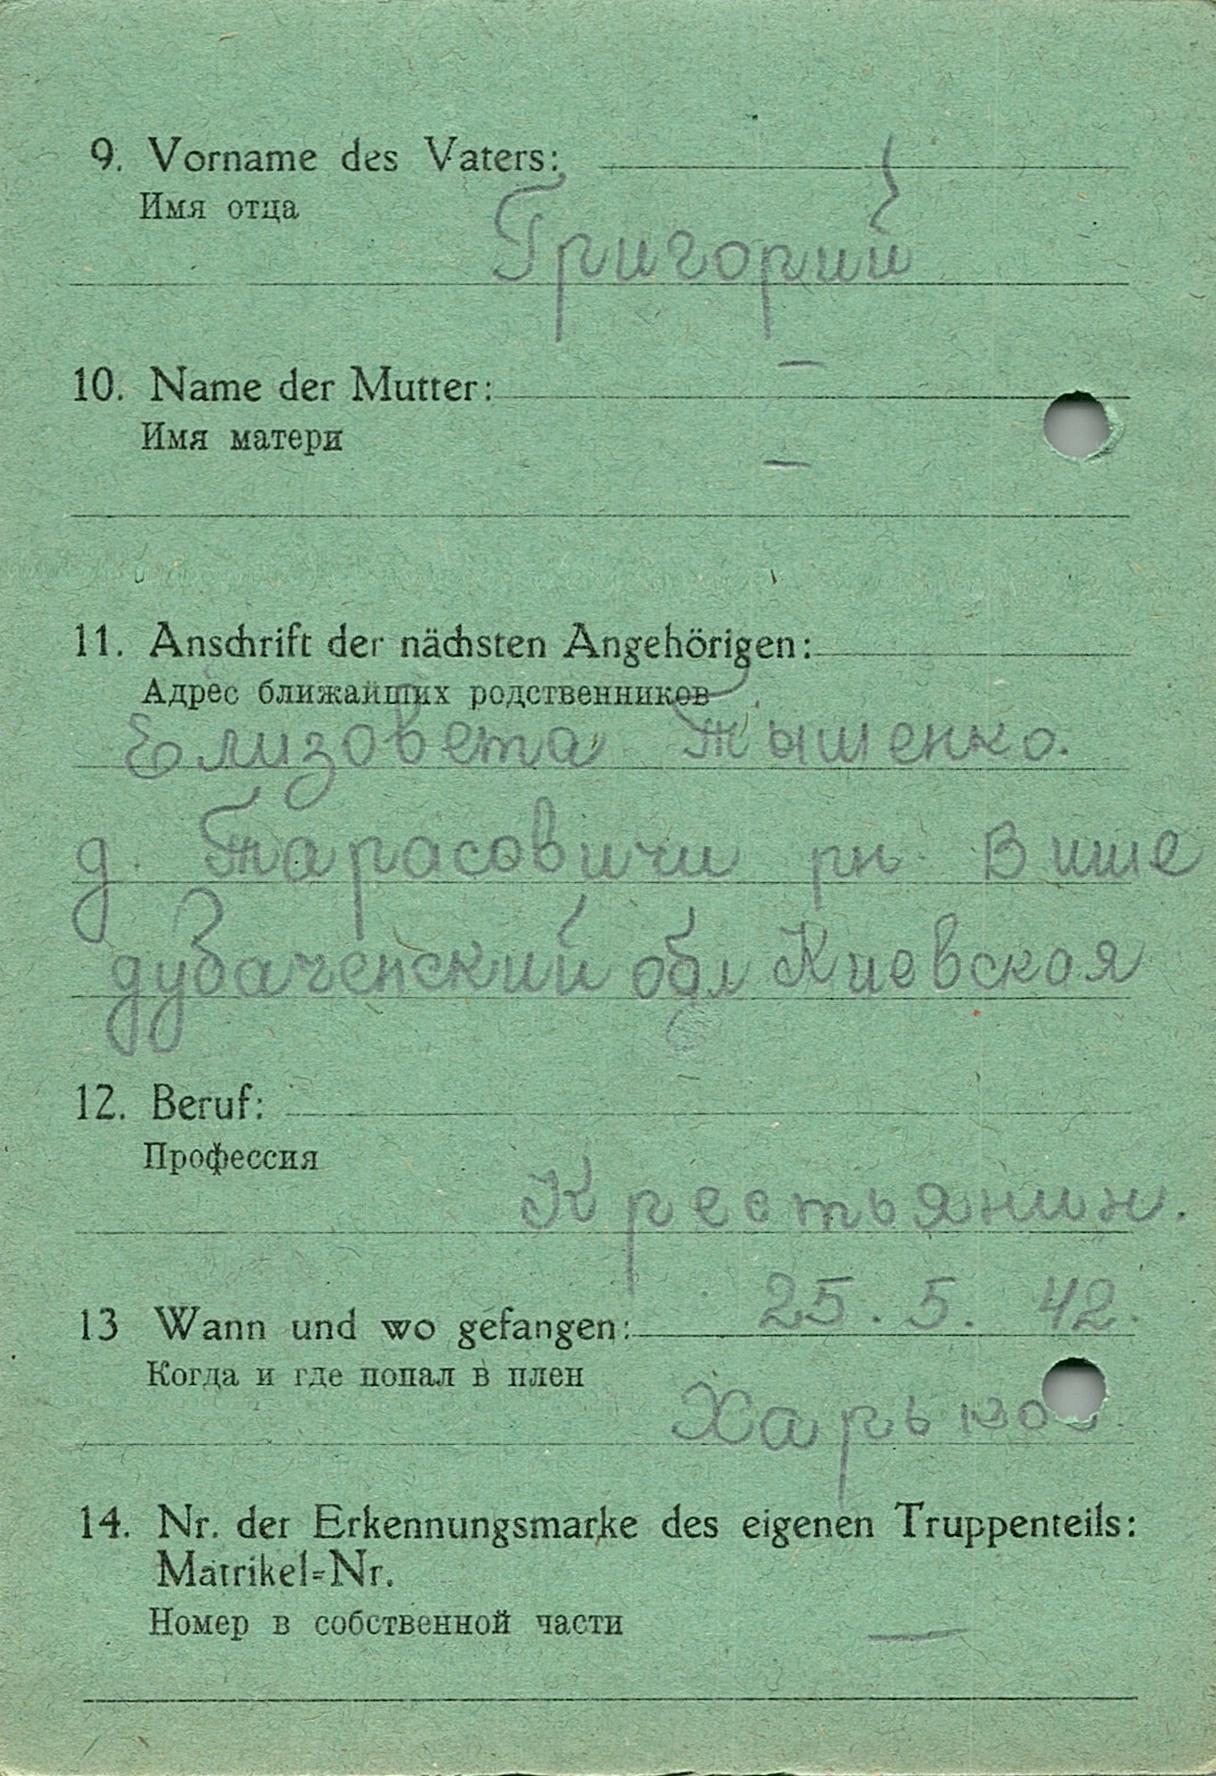 9. Vorname des Vaters:
Имя отца
Григорий
10. Name der Mutter: —
Имя матери
—
11. Anschrift der nächsten Angehörigen:
Адрес ближайших родственников
Елизовета Тышенко.
д. Тарасовичи рн. Више
дубаченский обл Киевская
12. Beruf:
Профессия
Крестьянин.
13 Wann und wo gefangen: 25. 5. 42.
Когда и где попал в плен
Харьков.
14. Nr. der Erkennungsmarke des eigenen Truppenteils:
Matrikel=Nr.
Номер в собственной части —